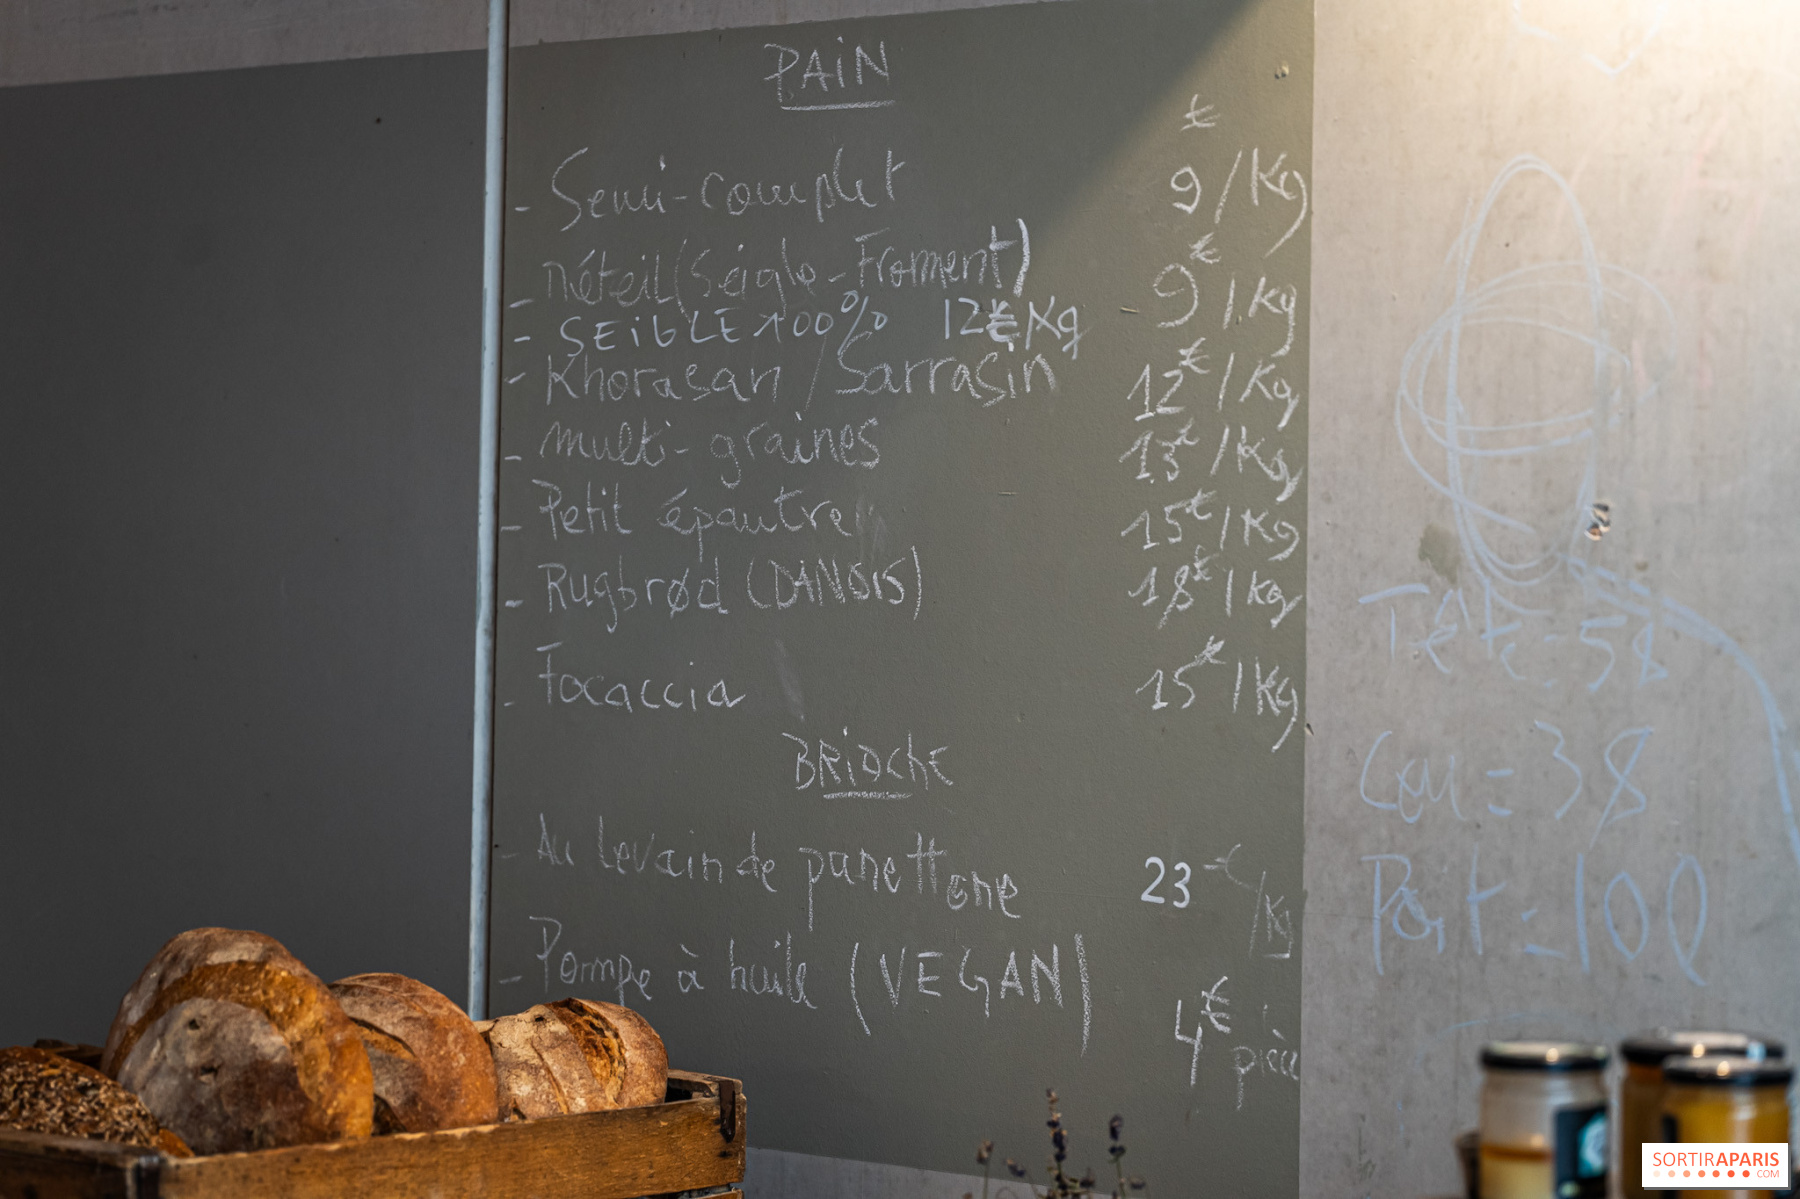 PAIN
- Semi-complet 9€/Kg
- Méteil (Seigle-Froment) 9€/Kg
- SEIGLE 100% 12€/Kg
- Khorasan / Sarrasin 12€/Kg
- multi-graines 13€/Kg
- Petit épautre 15€/Kg
- Rugbrød (DANOIS) 18€/Kg
- Focaccia 15€/Kg
BRIOCHE
- Au Levain de panettone 23€/Kg
- Pompe à huile (VEGAN) 4€ pièce
Tête = 58
Cou = 38
SORTIRAPARIS
.COM